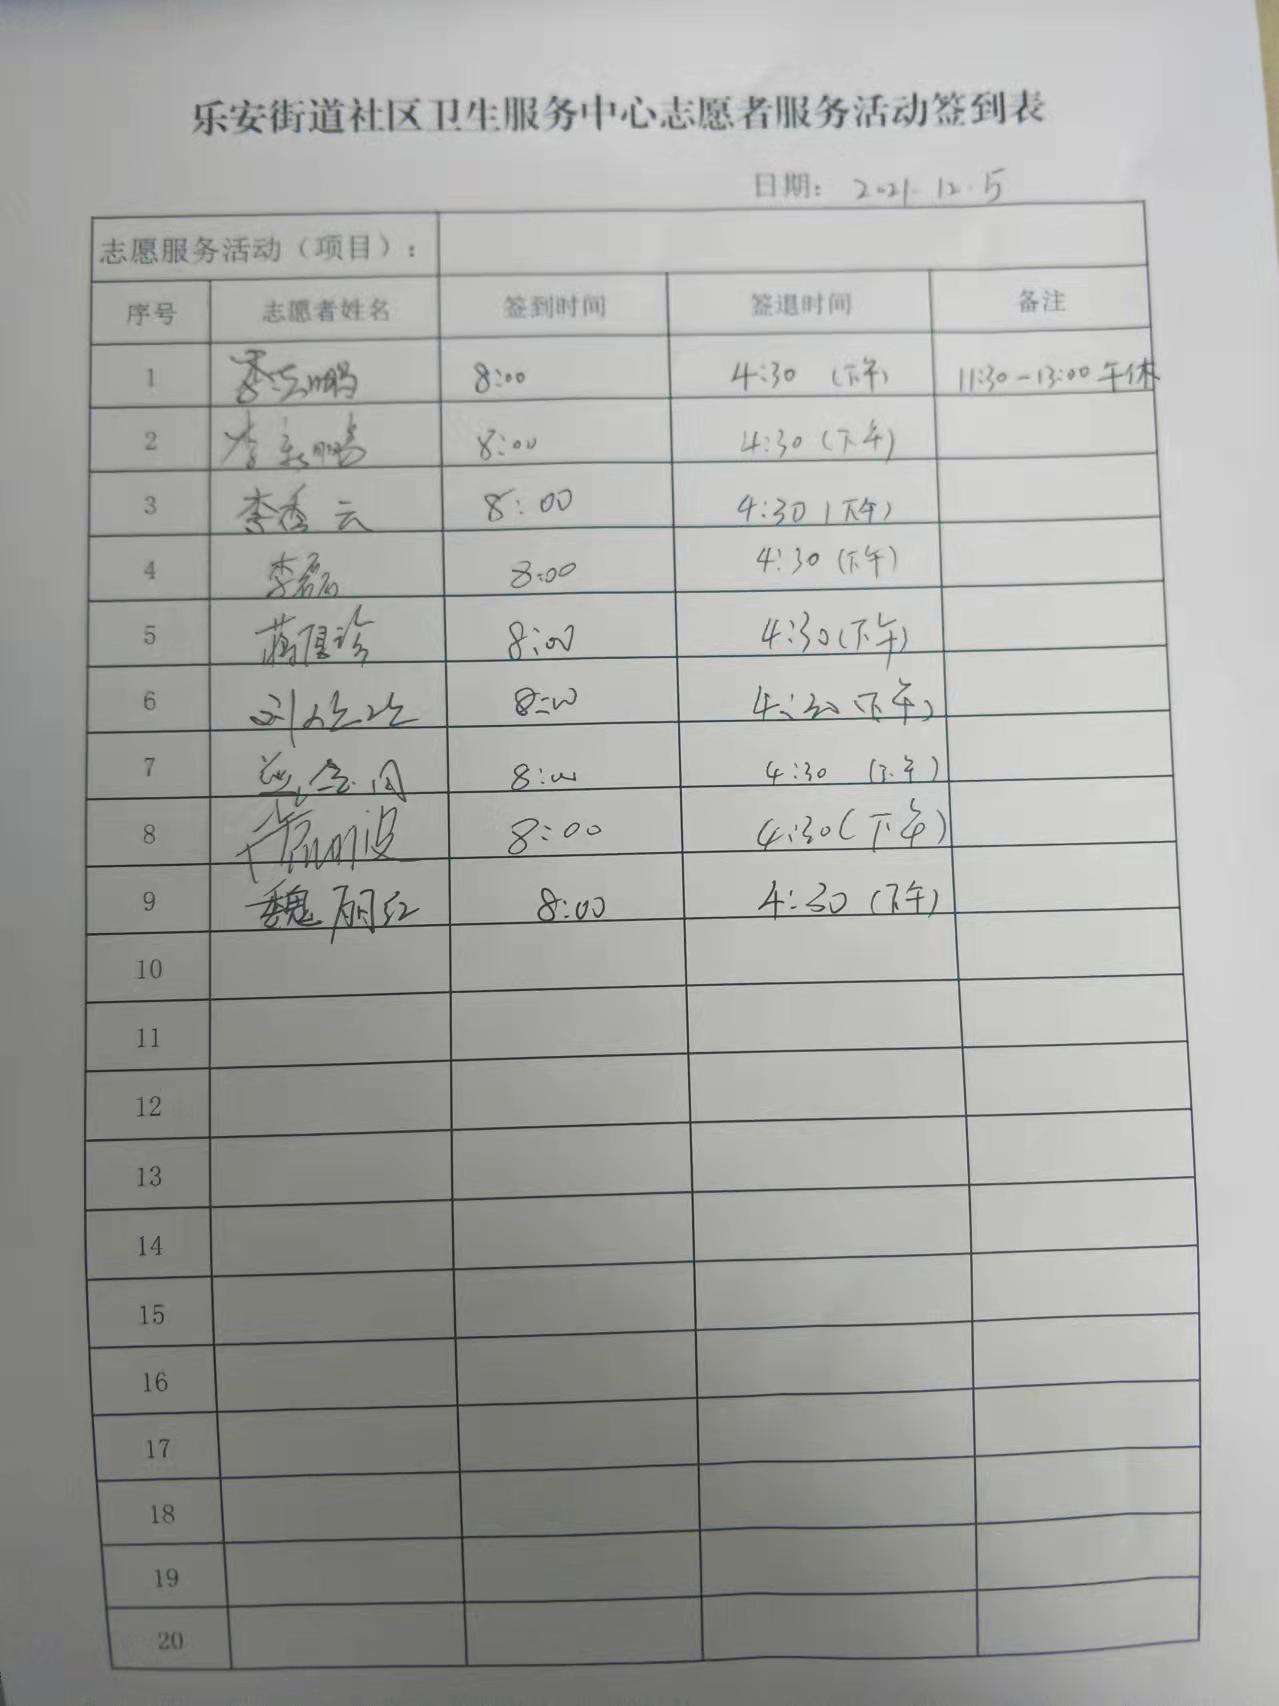 乐安街道社区卫生服务中心志愿者服务活动签到表
日期： 2021.12.5
志愿服务活动（项目）：
序号 志愿者姓名 签到时间 签退时间 备注
1 8:00 4:30 (下午) 11:30-13:00 午休
2 8:00 4:30 (下午)
3 李秀云 8:00 4:30 (下午)
4 李磊 8:00 4:30 (下午)
5 8:00 4:30 (下午)
6 8:00 4:30 (下午)
7 8:00 4:30 (下午)
8 8:00 4:30 (下午)
9 魏丽红 8:00 4:30 (下午)
10
11
12
13
14
15
16
17
18
19
20